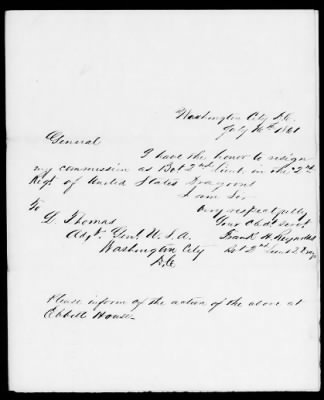 Washington City D.C.
July 16th 1861
General
I have the honor to resign
my commission as Bvt 2nd Lieut. in the 2nd
Regt of United States Dragoons
I am Sir
Very respectfully
Your Obdt Servt
Frank A. Reynolds
Bvt 2nd Lieut 2 Drag
To
L Thomas
Adgt. Genl U.S.A.
Washington City
D.C.
Please inform of the action of the above at
Ebbitt House